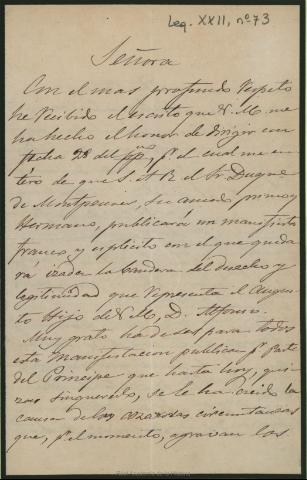 Leg. XXII, nº 73
Señora
Con el mas profundo respeto
he recibido el escrito que V. M. me
ha hecho el honor de dirigir con
fecha 28 del ppdo, pr. el cual me en-
tero de que S. A. R. el Sr. Duque
de Montpensier, su amado primo y
Hermano, publicará un manifiesto
franco y esplicito con el que queda
rá izada la bandera del derecho y
legitimidad que representa el Augus-
to Hijo de V. M., D. Alfonso.
Muy grato ha de ser para todos
esta manifestacion publica pr. parte
del Principe que hasta hoy, qui-
zas sin quererlo, se le ha creido la
causa de las azarosas circunstancias
que, pr. el momento, agravan los